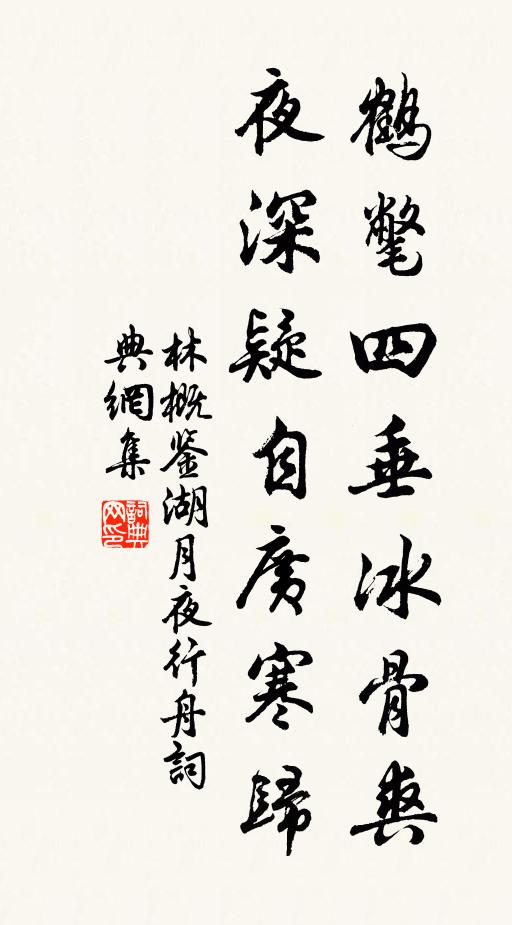 鶴氅四垂冰骨爽
夜深疑自廣寒歸
林概鉴湖月夜行舟詞
典網集
詞典
网印